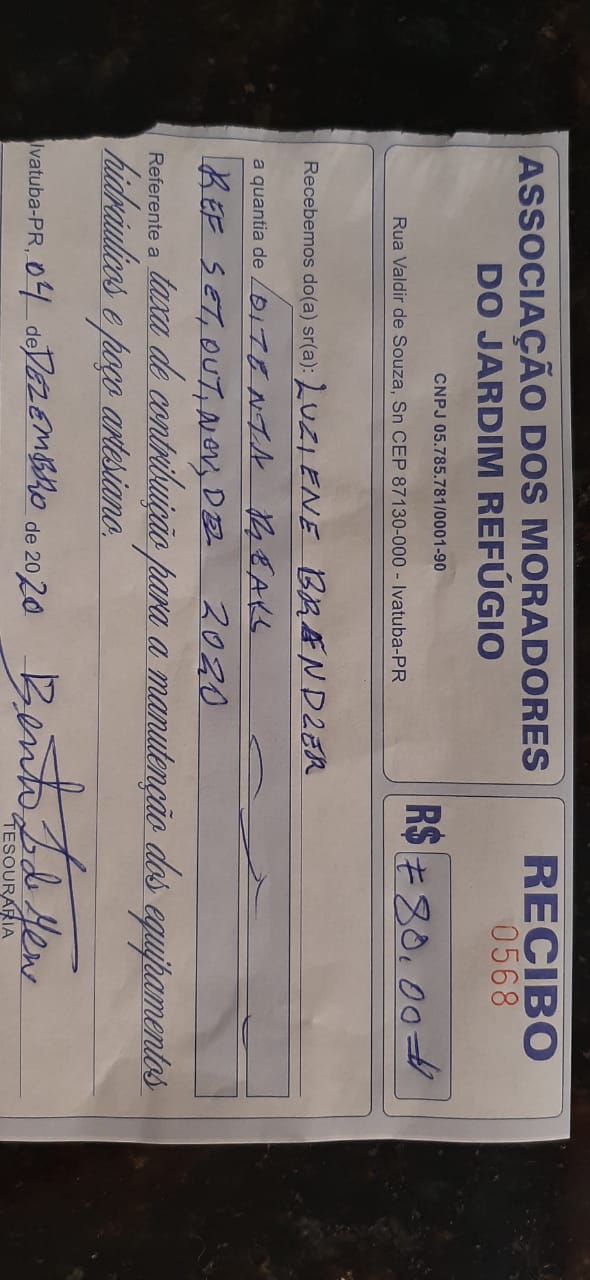 ASSOCIAÇÃO DOS MORADORES
DO JARDIM REFÚGIO
CNPJ 05.785.781/0001-90
Rua Valdir de Souza, Sn CEP 87130-000 - Ivatuba-PR
RECIBO
0568
R$ #80,00#
Recebemos do(a) sr(a): LUZIENE BRENDLER
a quantia de OITENTA REAIS
REF SET, OUT, NOV, DEZ 2020
Referente a taxa de contribuição para a manutenção dos equipamentos
hidráulicos e poço artesiano.
Ivatuba-PR, 04 de DEZEMBRO de 2020
TESOURARIA